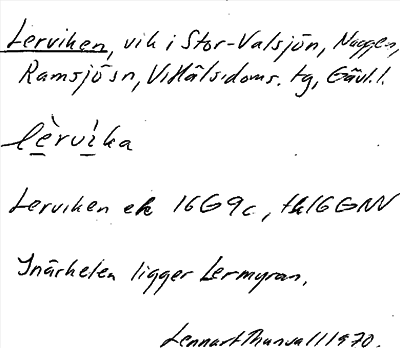 Lerviken, vik i Stor-Valsjön, Naggen,
Ramsjö sn, V:Hälsi.doms. tg, Gävl.l.
lèrvìka
Lerviken ek 16G9c, tk16GNV
I närheten ligger Lermyran.
Lennart Thunvall 1970.